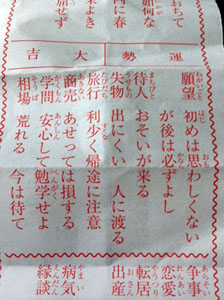 おちて
如何な
内に春
来よき
屈せず
運勢
大吉
願望 初めは思わしくない
が後は必ずよし
待人 おそいが来る
失物 出にくい 人に渡る
旅行 利少く帰途に注意
商売 あせっては損する
学問 安心して勉学せよ
相場 荒れる 今は待て
争事
恋愛
転居
出産
病気
縁談